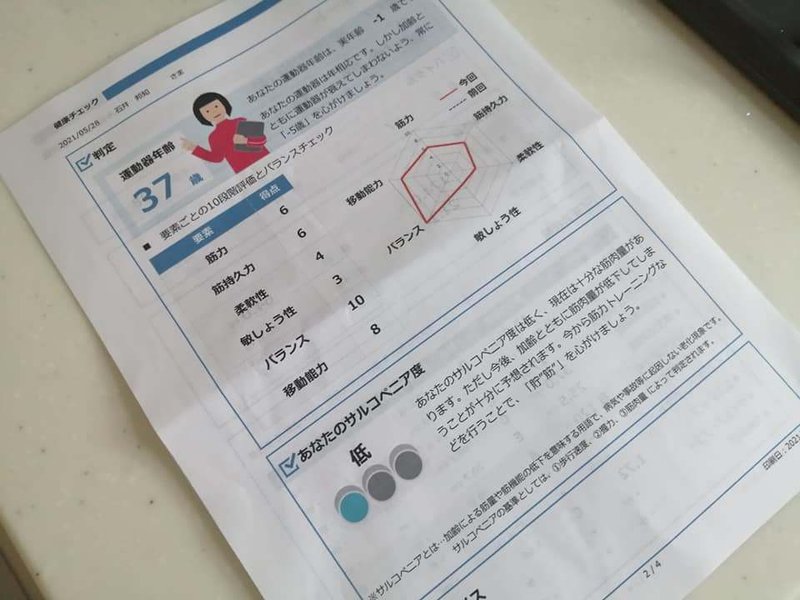 健康チェック
さま
2021/05/28 石井 邦知
判定
運動器年齢
37 歳
あなたの運動器年齢は、実年齢 -1 歳で
あなたの運動器は年相応です。しかし加齢と
ともに運動器が衰えてしまわないよう、常に
「-5歳」を心がけましょう。
■ 要素ごとの10段階評価とバランスチェック
要素 得点
筋力 6
筋持久力 6
柔軟性 4
敏しょう性 3
バランス 10
移動能力 8
今回
前回
筋力
筋持久力
柔軟性
敏しょう性
バランス
移動能力
あなたのサルコペニア度
低
あなたのサルコペニア度は低く、現在は十分な筋肉量があ
ります。ただし今後、加齢とともに筋肉量が低下してしま
うことが十分に予想されます。今から筋力トレーニングな
どを行うことで、「貯"筋"」を心がけましょう。
※サルコペニアとは…加齢による筋量や筋機能の低下を意味する用語で、病気や事故等に起因しない老化現象です。
サルコペニアの基準としては、①歩行速度、②握力、③筋肉量 によって判定されます。
印刷日:2021
2 / 4